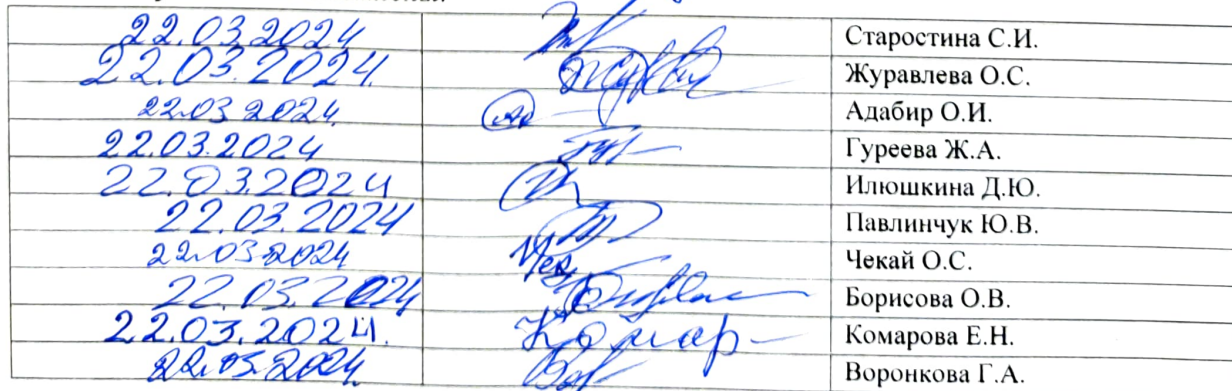 22.03.2024 Старостина С.И.
22.03.2024. Журавлева О.С.
22.03 2024. Адабир О.И.
22.03.2024 Гуреева Ж.А.
22.03.2024 Илюшкина Д.Ю.
22.03.2024 Павлинчук Ю.В.
22.03 2024 Чекай О.С.
22.03.2024 Борисова О.В.
22.03.2024. Комар Комарова Е.Н.
22.03.2024. Воронкова Г.А.